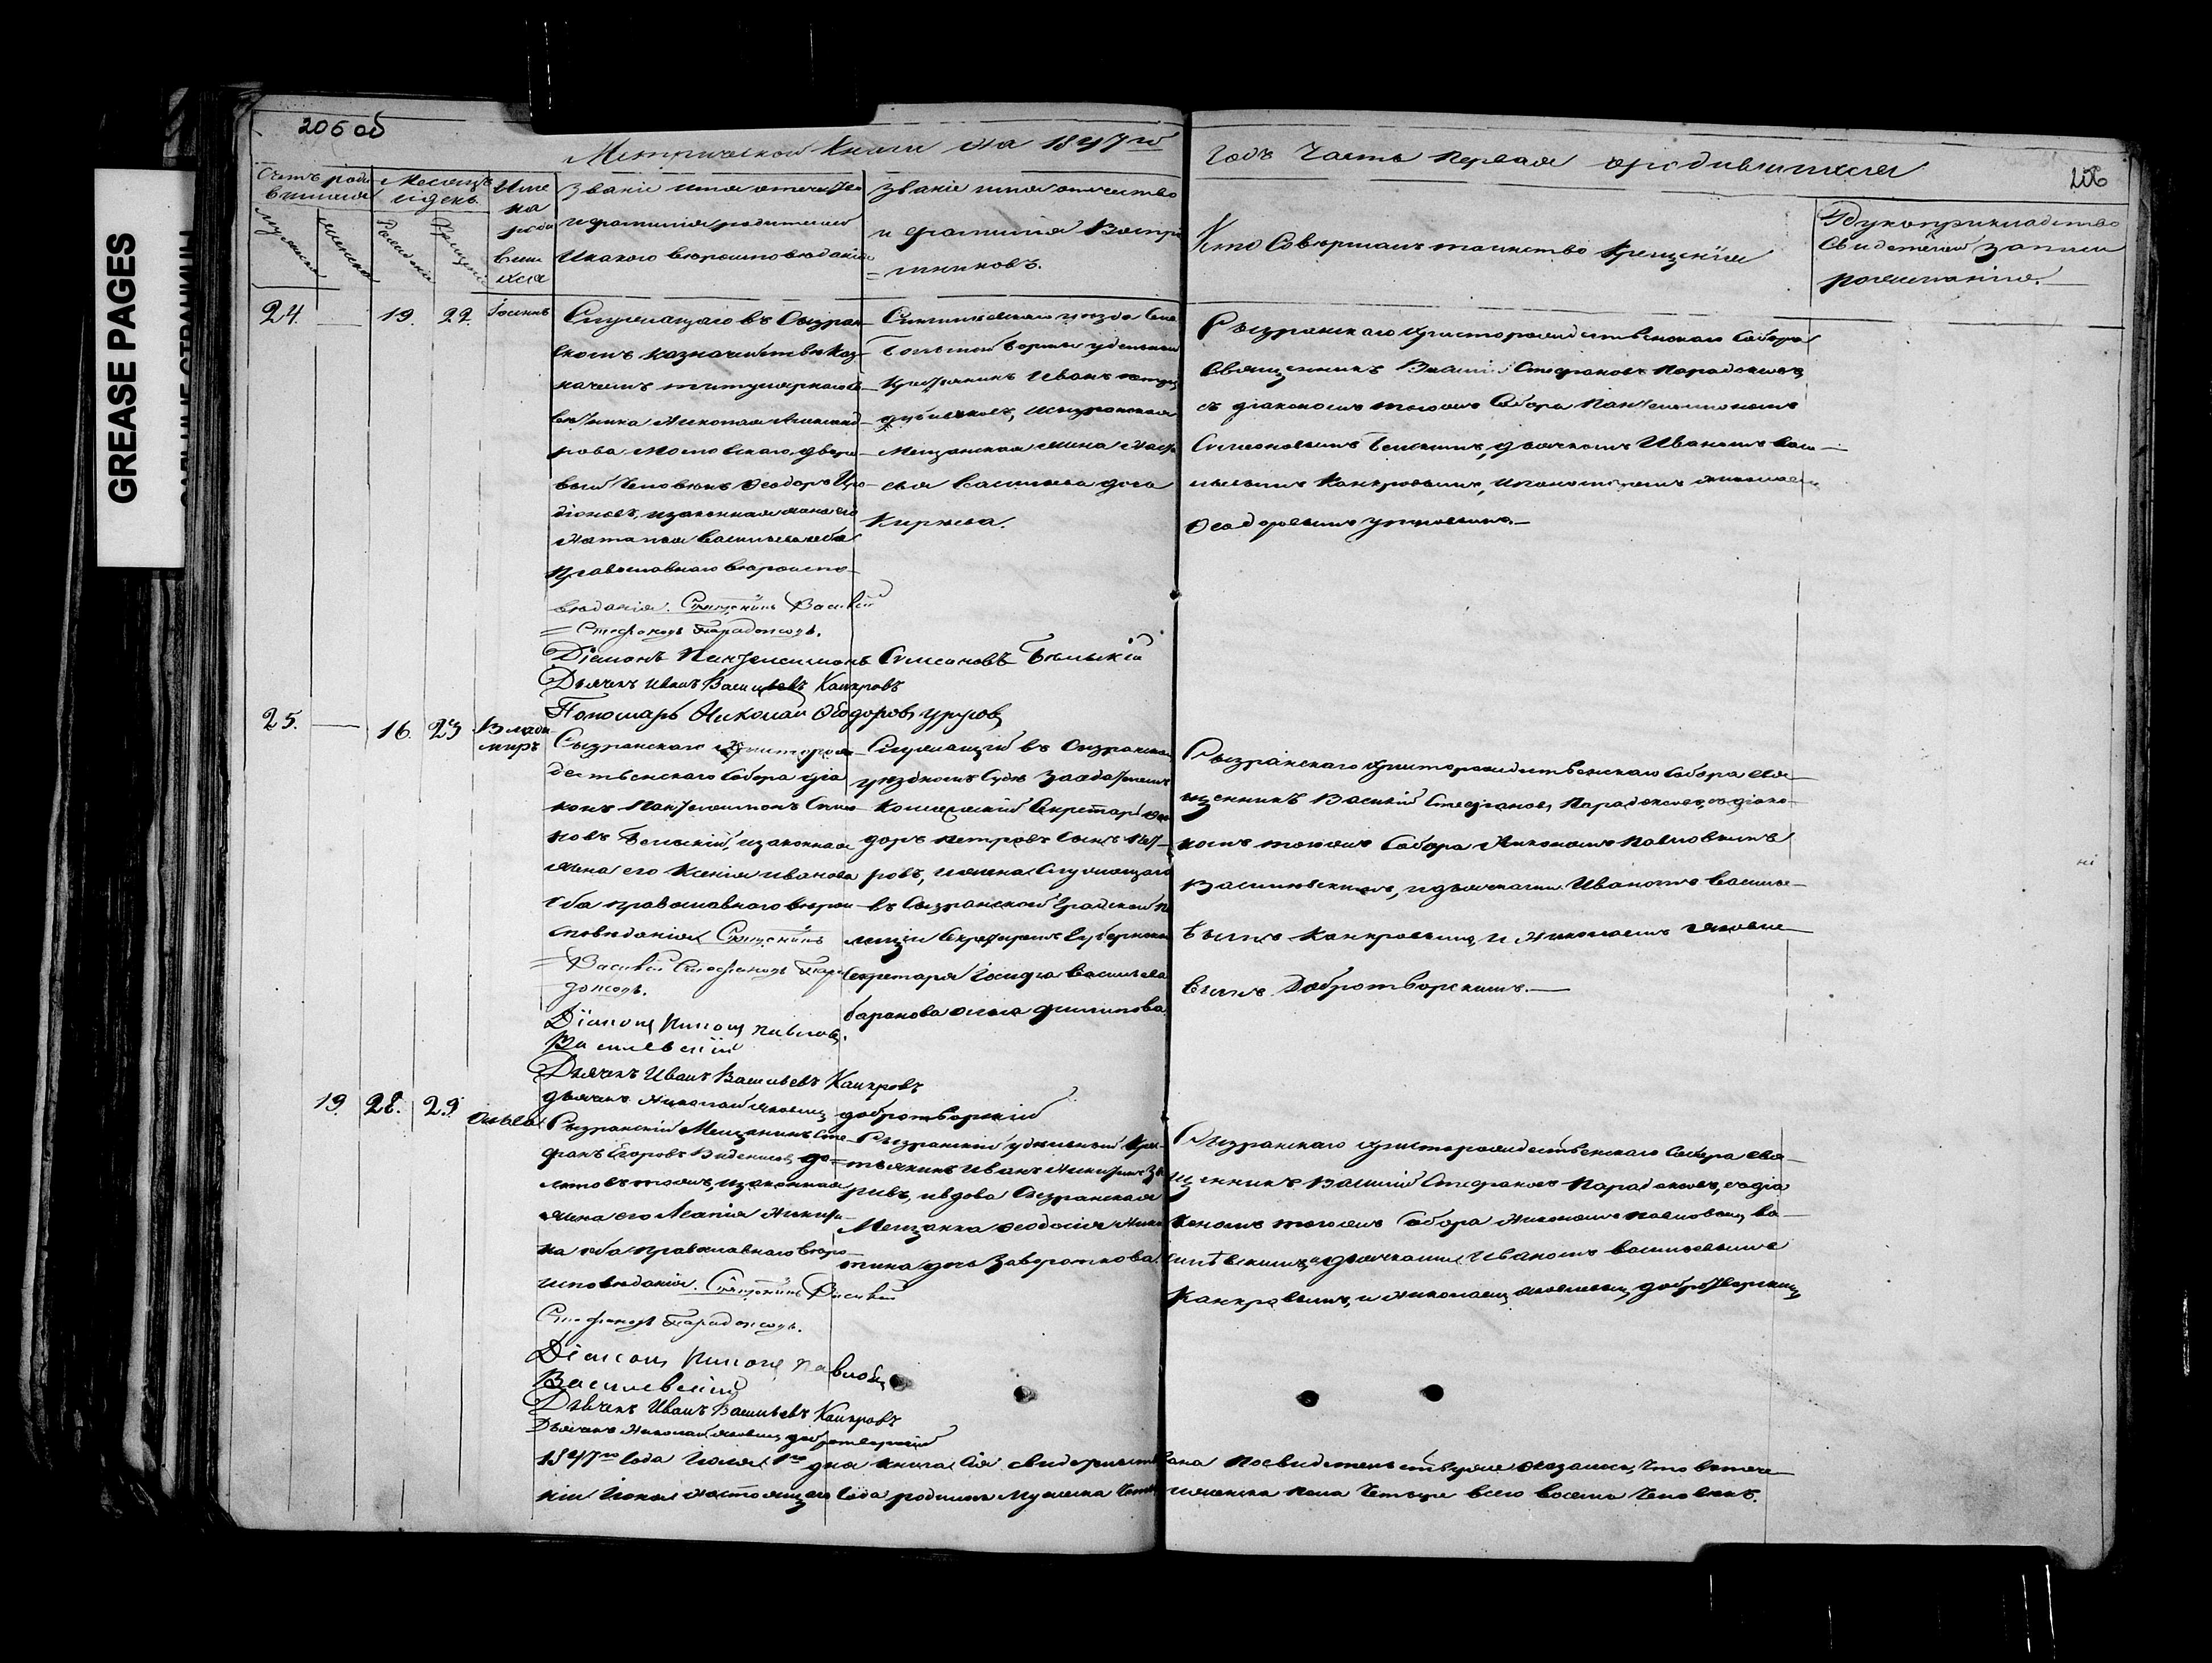 GREASE PAGES
206 об
Метрической Книги на 1847й
Годъ Часть первая о родившихся
206
Счетъ роди-
вшихся
Мужеска
Женска
Месяцъ
и день
Рожденія
Крещенія
Име
на
роди
вших
ся
Званіе имя отечество
и фамилія родителей
и какого вероисповеданія
Званіе имя отечество
и фамилія Воспрі
=мниковъ.
Кто Совершалъ таинство Крещенія
Рукоприкладство
Свидетелей записи
по желанію.
24.
19.
22.
Служащаго въ Сызран-
скомъ казначействе Каз-
начеемъ титулярнаго Со-
ветника Николая Александ-
рова дворо-
вый Человекъ Феодоръ
и законная жена его
Наталья Васильева оба
Православнаго вероиспо-
веданія. Священникъ Василій
=Стефановъ Парадоксовъ.
Діаконъ Пантелеимонъ Симеоновъ Бельскій
Дьячекъ Иванъ Васильевъ Канкровъ
Пономарь Николай Феодоровъ
уезда Села
Большой Борлы удельный
Крестьянинъ Иванъ
и сызранская
Мещанская жена
Васильева дочь
Кирѣева.
Сызранскаго Христорождественскаго Собора
Священникъ Василій Стефановъ Парадоксовъ,
съ діакономъ тогожъ Собора Пантелеимономъ
Симеоновымъ Бельскимъ, дьячкомъ Иваномъ Васи-
льевымъ Канкровымъ, и пономаремъ Николаемъ
Феодоровымъ
25.
16.
23
Влади
миръ
Сызранскаго Христорож-
дественскаго Собора діа
конъ Пантелеимонъ Симео
новъ Бельскій, и законная
жена его Ксенія Иванова
оба православнаго вѣрои-
споведанія. Священникъ
=Василій Стефановъ Пара
доксовъ.
Діаконъ Никонъ Павловъ
Василевскій
Дьячекъ Иванъ Васильевъ Канкровъ
дьячекъ Николай Яковлевъ добротворскій
Служащій въ Сызранском
уездномъ Суде Заседателемъ
Коллежскій Секретарь Фео
доръ Петровъ Сынъ
ровъ, и жена Служащаго
въ Сызранской Градской По
лиціи Секретаремъ Губернскаго
Секретаря Іосифа Васильева
Баранова Ольга Филипова.
Сызранскаго Христорождественскаго Собора Свя-
щенникъ Василій Стефановъ Парадоксовъ, съ діако-
номъ тогожъ Собора Никономъ Павловымъ
Василевскимъ, и дьячками Иваномъ Василье-
вымъ Канкровымъ, и Николаемъ Яковле-
вымъ Добротворскимъ.
19.
28.
29.
Ольга
Сызранскій Мещанинъ Сте-
фанъ Егоровъ
и законная
жена его Агапія Никити
на оба православнаго веро-
исповеданія. Священникъ Василій
Стефановъ Парадоксовъ.
Діаконъ Никонъ Павловъ
Василевскій
Дьячекъ Иванъ Васильевъ Канкровъ
Дьячекъ Николай Яковлевъ добротворскій
Сызранскій удельный Кре-
стьянинъ Иванъ Никитинъ
и вдова Сызранская
Мещанка Феодосія Ники
тина дочь Заворотнова.
Сызранскаго Христорождественскаго Собора свя-
щенникъ Василій Стефановъ Парадоксовъ, съ діа
кономъ тогожъ Собора Никономъ Павловымъ Ва-
силевскимъ, и дьячками Иваномъ Васильевымъ
Канкровымъ, и Николаемъ Яковлевымъ добротворскимъ
1847го Года Іюля 1го дня книга Сія свидетельствована по свидетельству оказалось, что втече-
ніи Іюня настоящаго Года родилось Мужеска Четыре и женска пола Четыре всего восемь Человекъ.